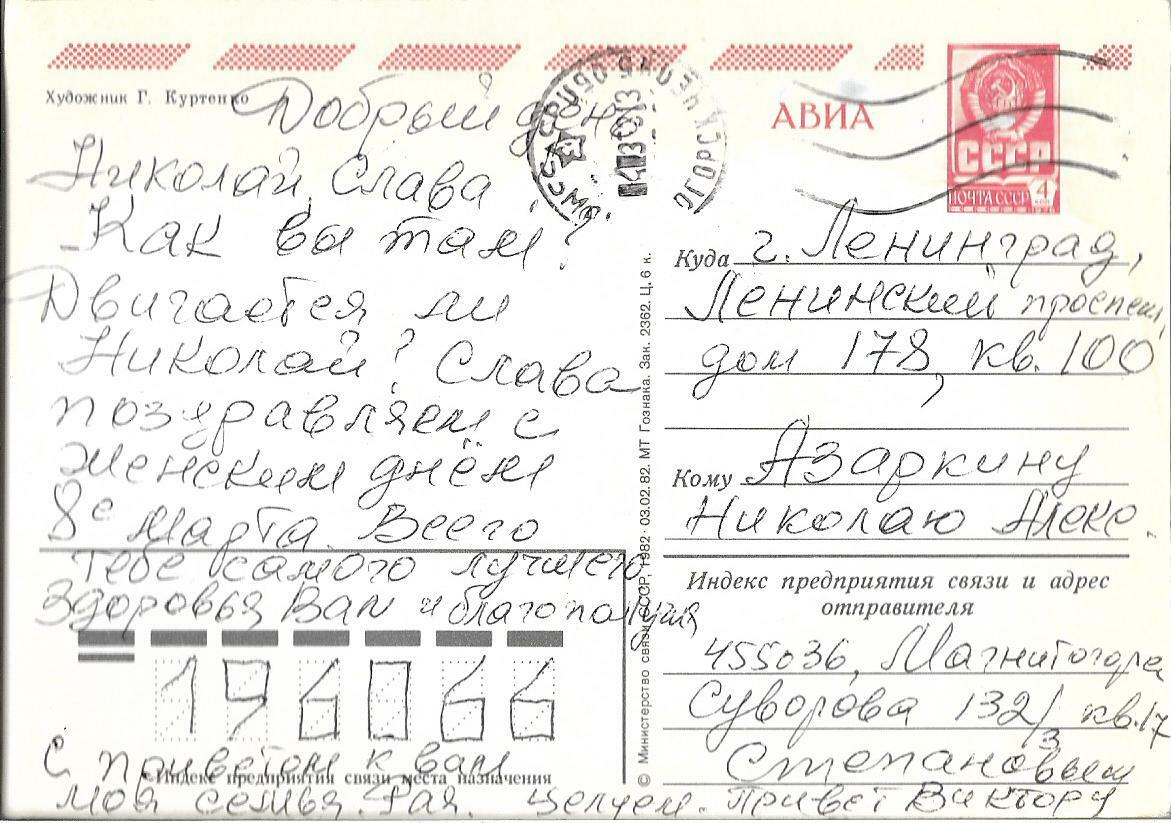 Художник Г. Куртенко
АВИА
СССР
ПОЧТА СССР 4 коп
Добрый день
Николай, Слава!
Как вы там?
Двигается ли
Николай? Слава
поздравляем с
женским днём
8е Марта. Всего
тебе самого лучшего
Здоровья Вам и благополучия
196066
С приветом к вам
Индекс предприятия связи места назначения
моя семья. Рая. Целуем. Привет Виктору
© Министерство связи СССР, 1982. 03.02.82. МТ Гознака. Зак. 2362. Ц. 6 к.
Куда г. Ленинград,
Ленинский проспект,
дом 178, кв. 100
Кому Азаркину
Николаю Алекс.
Индекс предприятия связи и адрес
отправителя
455036, Магнитогорск
Суворова 132/3 кв. 17
Степановым